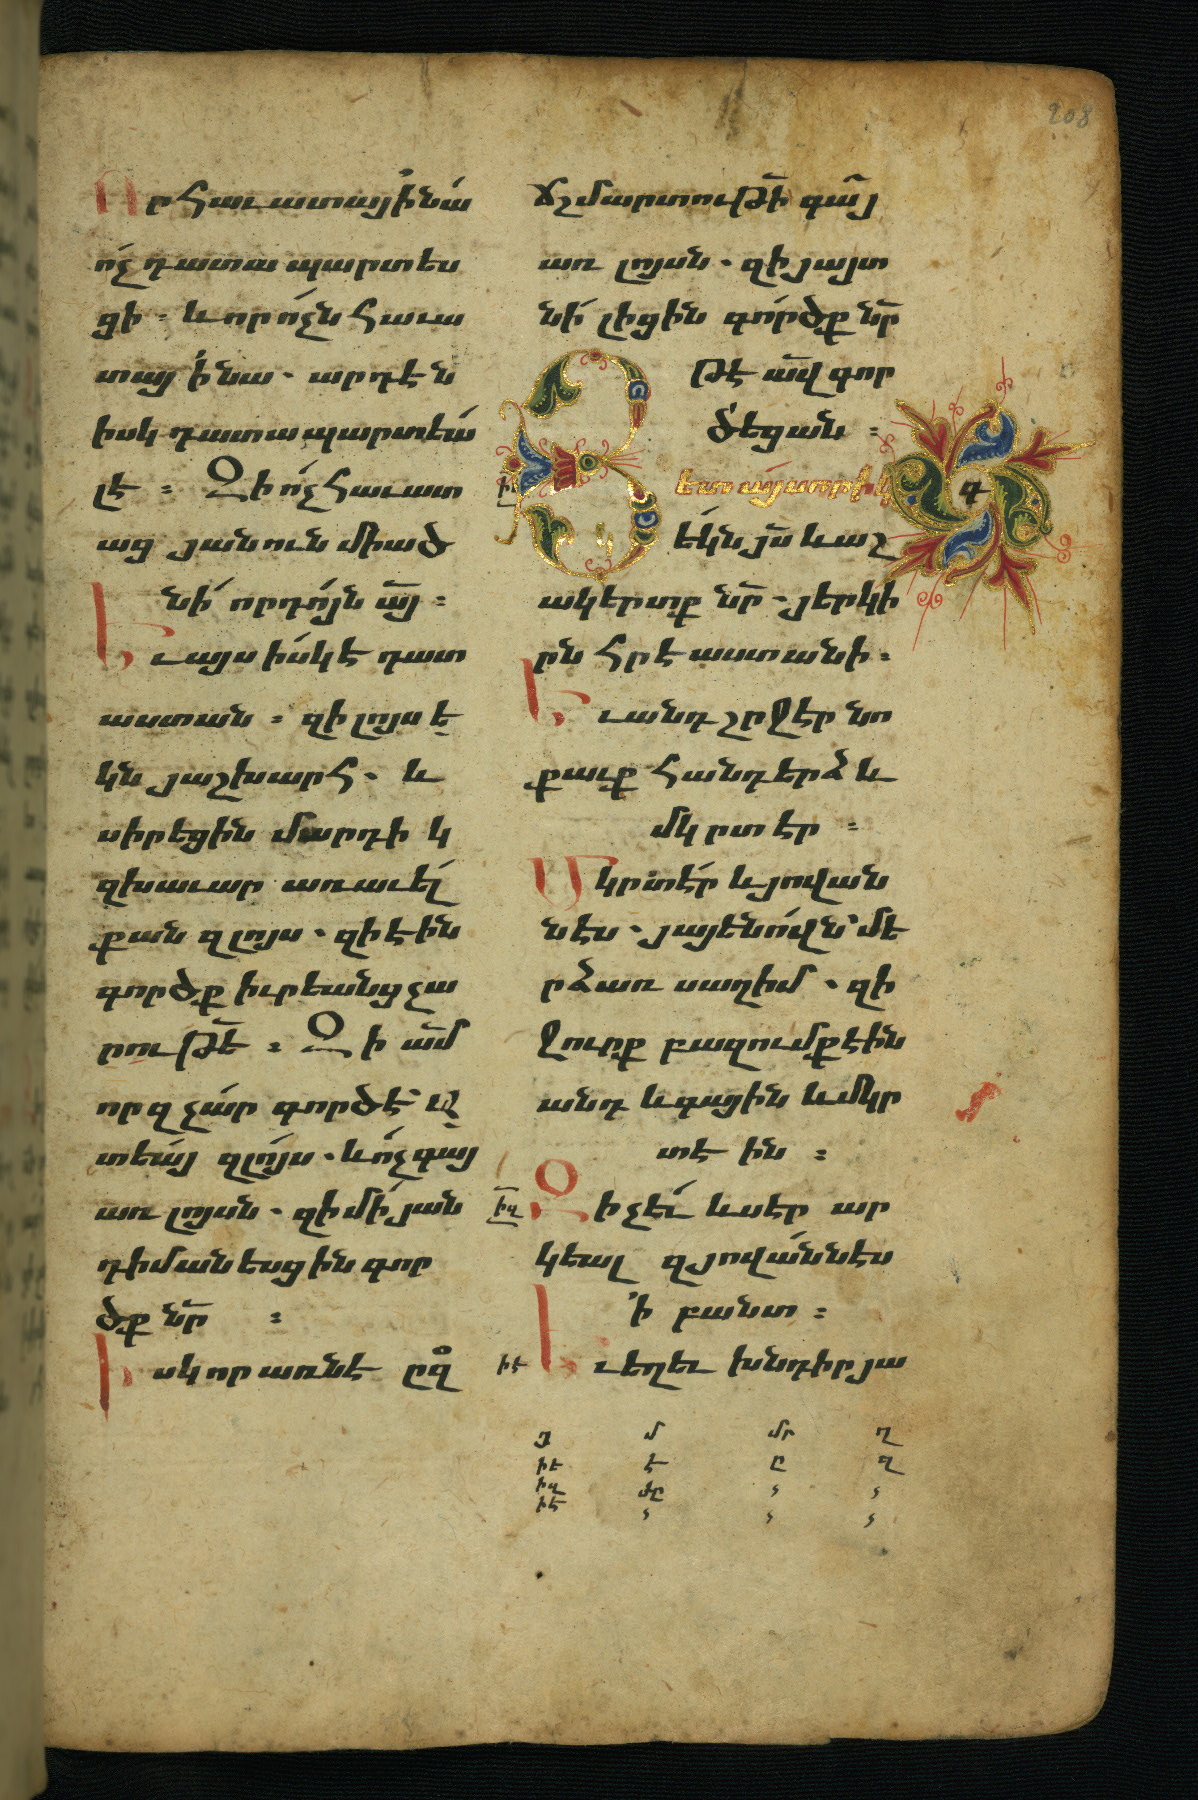 208
Որ հաւատայ ի նա
ոչ դատապարտես
ցի. և որ ոչն հաւա
տայ ի նա. արդէն
իսկ դատապարտեա
լ է : Զի ոչ հաւատ
աց յանուն միած
նի որդւոյն այ :
Եւ այս իսկ է դատ
աստան : զի լոյս ե
կն յաշխարհ. և
սիրեցին մարդիկ
զխաւար առաւել
քան զլոյս. զի էին
գործք իւրեանց չա
րութե : Զի ամ
որ զչար գործէ ա
տեայ զլոյս. և ոչ գայ
առ լոյսն. զի մի յան
դիմանեսցին գոր
ծք նր :
Իսկ որ առնէ ըզ
ճշմարտութի գայ
առ լոյսն. զի յայտ
նի լիցին գործք նր
թէ ած վ գոր
ծեցան :
Յետ այսորիկ
եկն յս և աշ
ակերտք նր. յերկի
րն հրէաստանի :
Եւ անդ շրջէր նո
քաւք հանդերձ և
մկրտէր :
Մկրտէր և յովան
նէս. յայենովն մե
րձ առ սաղիմ. զի
ջուրք բազումք էին
անդ և գային և մկր
տէին :
Զի չեւ և ս էր ար
կեալ զյովաննէս
ի բանտ :
Եւ եղեւ խնդիր յա
գ
իզ
իէ
յ մ մր ղ
իե է ը զ
իզ ժը
իէ